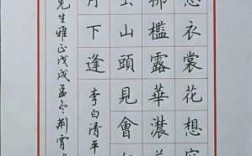 想衣裳花想容
拂檻露華濃若
山頭見會
月下逢 李白清平
先生雅正戊戌孟冬荆霄